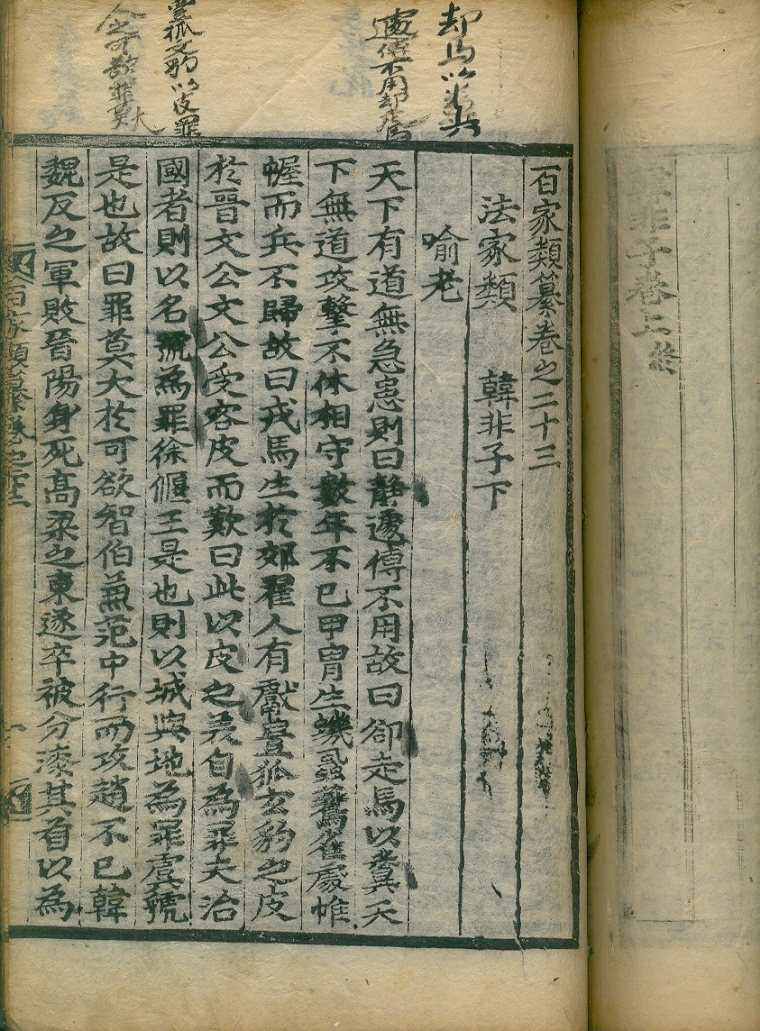 韓非子卷上終
却馬以糞
遽傳不用却走馬
豐狐文豹以皮罪
百家類纂卷之二十三
法家類　韓非子下
喻老
天下有道無急患則曰靜遽傅不用故曰卻走馬以糞天
下無道攻擊不休相守數年不已甲冑生蟣蝨鷰雀處帷
幄而兵不歸故曰戎馬生於郊翟人有獻豐狐玄豹之皮
於晉文公文公受客皮而歎曰此以皮之美自為罪夫治
國者則以名號為罪徐偃王是也則以城與地為罪虞虢
是也故曰罪莫大於可欲智伯兼范中行而攻趙不已韓
魏反之軍敗晉陽身死高梁之東遂卒被分漆其首以為
百家類纂卷之